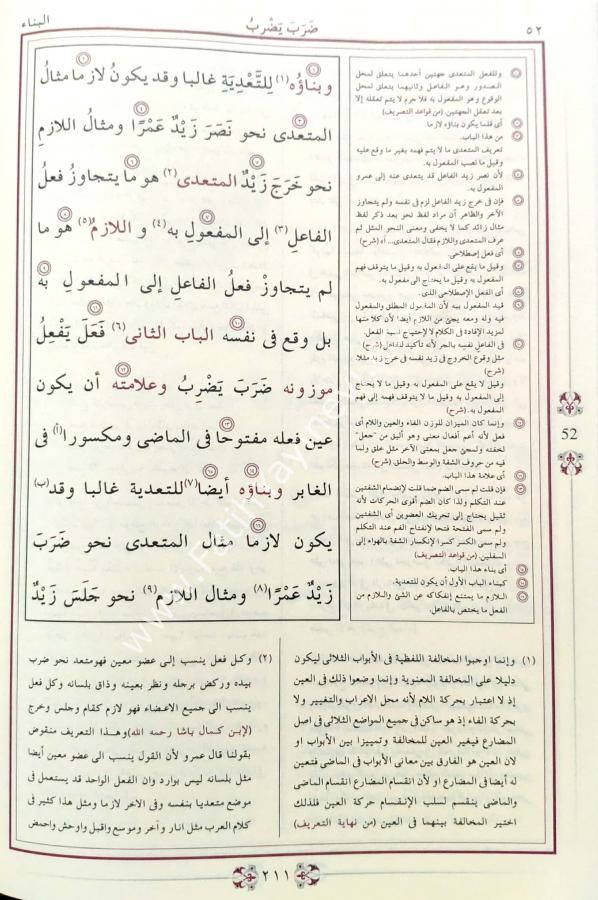 ٥٢
ضَرَبَ يَضْرِبُ
البناء
وبناؤُه (١) لِلتَّعْدِيَةِ غالبا وقد يكونُ لازما مثالُ
المتعدى نحو نَصَرَ زَيْدٌ عَمْرًا ومثالُ اللازمِ
نحو خَرَجَ زَيْدٌ المتعدى (٢) هو ما يتجاوزُ فعلُ
الفاعلِ (٣) إلى المفعولِ به (٤) و اللازمُ (٥) هو ما
لم يتجاوزْ فعلُ الفاعلِ إلى المفعولِ به
بل وقع فى نفسه الباب الثانى (٦) فَعَلَ يَفْعِلُ
موزونه ضَرَبَ يَضْرِبُ وعلامته أن يكون
عين فعله مفتوحا فى الماضى ومكسورا (أ) فى
الغابر وبناؤه أيضا (٧) للتعدية غالبا وقد (ب)
يكون لازما مثال المتعدى نحو ضَرَبَ
زَيْدٌ عَمْرًا (٨) ومثال اللازم (٩) نحو جَلَسَ زَيْدٌ
وللفعل المتعدى جهتين أحدهما يتعلق لمحل
الصدور وهو الفاعل وثانيهما يتعلق لمحل
الوقوع وهو المفعول به فلا جرم لا يتم تعقله إلا
بعد تعقل الجهتين. (من قواعد التصريف)
أى قلما يكون بناؤه لازما.
من هذا الباب.
تعريف المتعدى ما لا يتم فهمه بغير ما وقع عليه
وقيل ما نصب المفعول به.
لأن نصر زيد الفاعل قد يتعدى عنه إلى عمرو
المفعول به.
فإن فى خرج زيد الفاعل لزم فى نفسه ولم يتجاوز
الآخر والظاهر أن مراد لفظ نحو بعد ذكر لفظ
مثال زائد كما لا يخفى ومعنى نحو المثل ثم
عرف المتعدى واللازم فقال المتعدى... أه (شرح)
أى فعل إصطلاحى.
وقيل ما يقع على المفعول به وقيل ما يتوقف فهم
المفعول به وقيل ما يحتاج الى مفعول به.
أى الفعل الإصطلاحى الذى.
قيد المفعول ببه لأن المفعول المطلق والمفعول
فيه وله ومعه يجئ من اللازم أيضا لأن كلا منها
لمزيد الإفادة فى الكلام لا لإحتياج نسبة الفعل.
فى الفاعل نفسه بالجر لأنه تأكيد للفاعل (شرح)
مثل وقوع الخروج فى زيد نفسه فى خرج زيد مثلا.
(شرح)
وقيل لا يقع على المفعول به وقيل ما لا يحتاج
إلى المفعول به وقيل ما لا يتوقف فهمه إلى فهم
المفعول به. (شرح)
وإنما كان الميزان للوزن الفاء والعين واللام أى
فعل لأنه أعم أفعال معنى وهو أليق من "جعل"
لخفته ولمجئ جعل بمعنى الآخر مثل خلق ولما
فيه من حروف الشفة والوسط والحلق (شرح)
أى علامة هذا الباب.
فإن قلت لم سمى الضم ضما قلت لإنضمام الشفتين
عند التكلم ولذا كان الضم أقوى الحركات لأنه
ثقيل يحتاج إلى تحريك العضوين أى الشفتين
ولم سمى الفتحة فتحا لإنفتاح الفم عند التكلم
ولم سمى الكسر كسرا لإنكسار الشفة بالهواء إلى
السفلين. (من قواعد التصريف)
أى بناء هذا الباب.
كبناء الباب الأول أن يكون للتعدية.
اللازم ما يمتنع إنفكاكه عن الشئ واللازم من
الفعل ما يختص بالفاعل.
52
(١) وإنما اوجبوا المخالفة اللفظية فى الأبواب الثلاثى ليكون
دليلا على المخالفة المعنوية وإنما وضعوا ذلك فى العين
إذ لا اعتبار بحركة اللام لأنه محل الاعراب والتغيير ولا
بحركة الفاء إذ هو ساكن فى جميع المواضع الثلاثى فى اصل
المضارع فيغير العين للمخالفة وتمييزا بين الأبواب او
لان العين هو الفارق بين معانى الأبواب فى الماضى فتعين
له أيضا فى المضارع او لأن انقسام المضارع انقسام الماضى
والماضى ينقسم لسلب الإنقسام حركة العين فلذلك
اختير المخالفة بينهما فى العين (من نهاية التعريف)
(٢) وكل فعل ينسب إلى عضو معين فهومتعد نحو ضرب
بيده وركض برجله ونظر بعينه وذاق بلسانه وكل فعل
ينسب الى جميع الاعضاء فهو لازم كقام وجلس وخرج
(لإبن كمال باشا رحمه الله)وهذا التعريف منقوض
بقولنا قال عمرو لأن القول ينسب الى عضو معين أيضا
مثل بلسانه ليس بوارد وان الفعل الواحد قد يستعمل فى
موضع متعديا بنفسه وفى الاخر لازما ومثل هذا كثير فى
كلام العرب مثل انار وآخر وموسع واقبل واوحش واحمض
٢١١